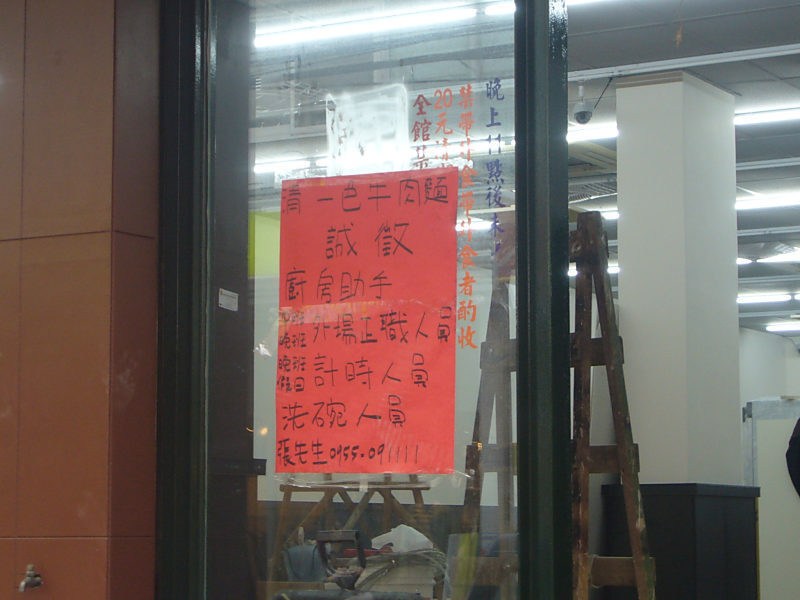 清一色牛肉麵
誠徵
廚房助手
晚班
外場正職人員
晚班
假日
計時人員
洗碗人員
張先生 0955-091111
晚上11點後未
者酌收
20元清
全館禁